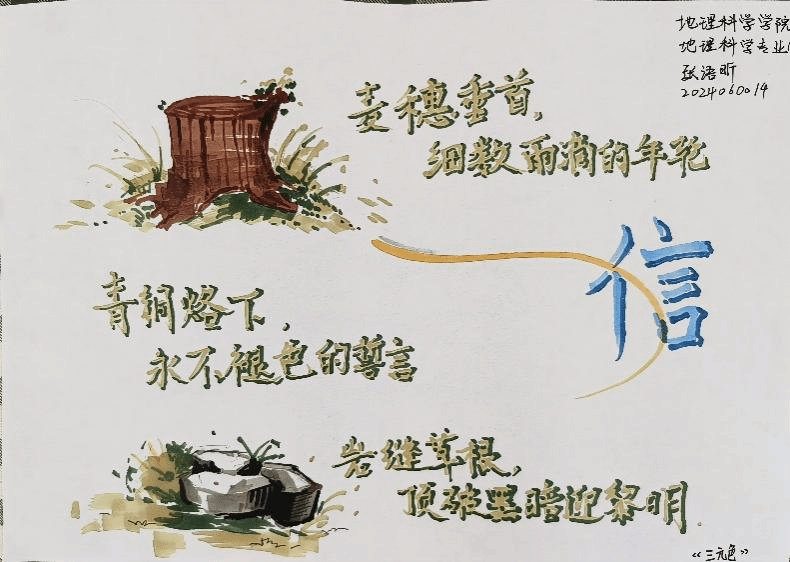 地理科学学院
地理科学专业
张语昕
2024060014
麦穗垂首，
细数雨滴的年轮
信
青铜烙下，
永不褪色的誓言
岩缝草根，
顶破黑暗迎黎明
“三元色”